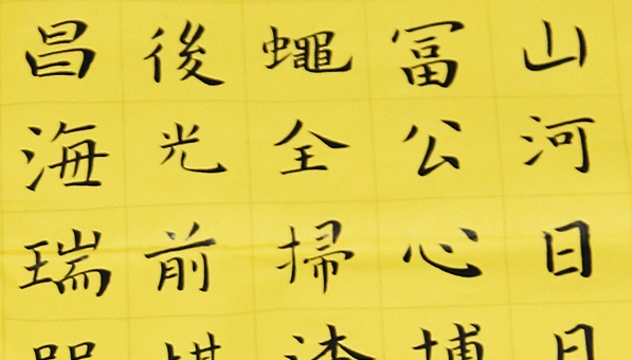 山河日月
冨公心博
蠅全掃
後光前
昌海瑞